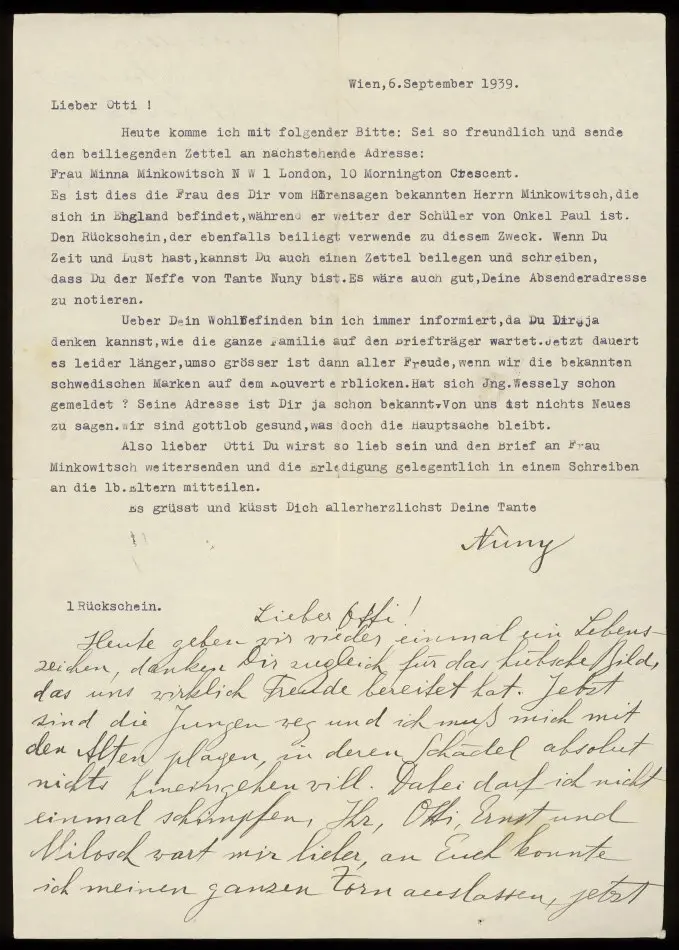 Wien,6.September 1939.
Lieber Otti !
Heute komme ich mit folgender Bitte: Sei so freundlich und sende
den beiliegenden Zettel an nachstehende Adresse:
Frau Minna Minkowitsch N W 1 London, 10 Mornington Crescent.
Es ist dies die Frau des Dir vom Hörensagen bekannten Herrn Minkowitsch,die
sich in England befindet,während er weiter der Schüler von Onkel Paul ist.
Den Rückschein,der ebenfalls beiliegt verwende zu diesem Zweck. Wenn Du
Zeit und Lust hast,kannst Du auch einen Zettel beilegen und schreiben,
dass Du der Neffe von Tante Nuny bist.Es wäre auch gut,Deine Absenderadresse
zu notieren.
Ueber Dein Wohlbefinden bin ich immer informiert,da Du Dir ja
denken kannst,wie die ganze Familie auf den Briefträger wartet.Jetzt dauert
es leider länger,umso grösser ist dann aller Freude,wenn wir die bekannten
schwedischen Marken auf dem Kouvert erblicken.Hat sich Jng.Wessely schon
gemeldet ? Seine Adresse ist Dir ja schon bekannt.Von uns ist nichts Neues
zu sagen.Wir sind gottlob gesund,was doch die Hauptsache bleibt.
Also lieber Otti Du wirst so lieb sein und den Brief an Frau
Minkowitsch weitersenden und die Erledigung gelegentlich in einem Schreiben
an die lb.Eltern mitteilen.
Es grüsst und küsst Dich allerherzlichst Deine Tante
Nuny
1 Rückschein.
Lieber Otti!
Heute geben wir wieder einmal ein Lebens-
zeichen, danken Dir zugleich für das hübsche Bild,
das uns wirklich Freude bereitet hat. Jetzt
sind die Jungen weg und ich muß mich mit
den Alten plagen, in deren Schädel absolut
nichts hineingehen will. Dabei darf ich nicht
einmal schimpfen, Ihr, Otti, Ernst und
Milosch wart mir lieber, an Euch konnte
ich meinen ganzen Zorn auslassen, jetzt